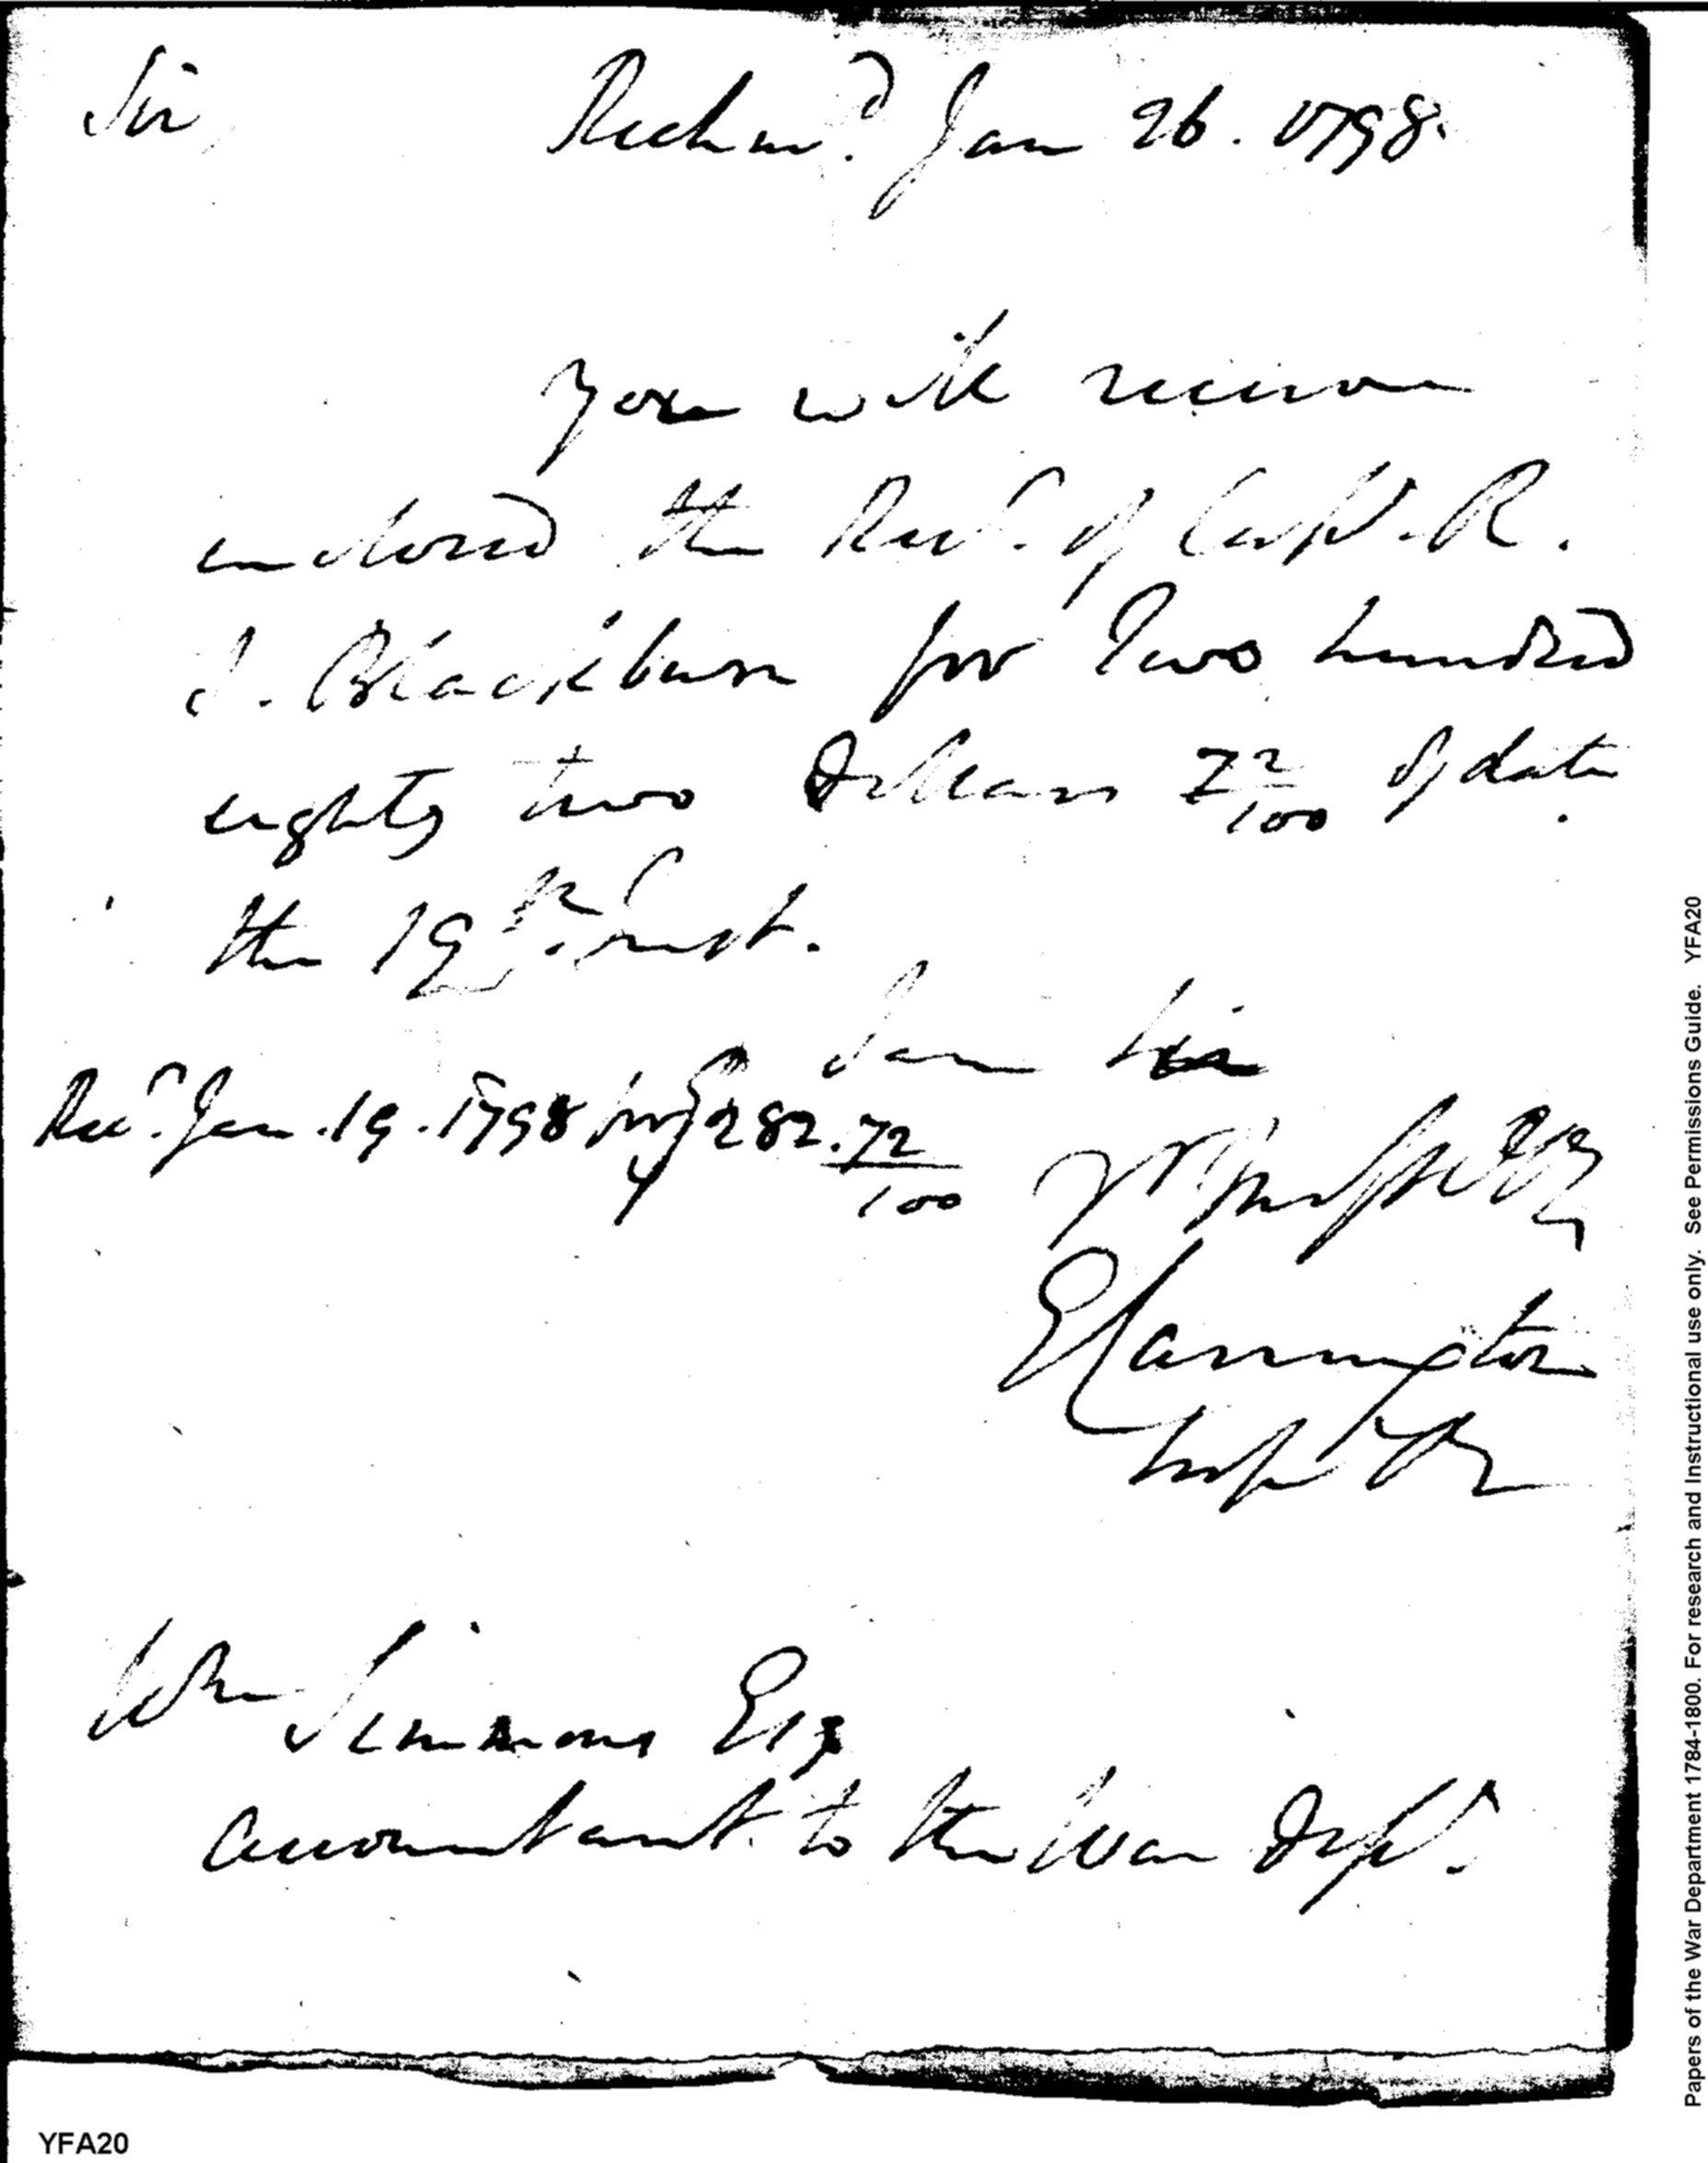 Sir, Richmd. Jan 26. 1798.
You will receive
enclosed the Rect. of Capt. R.
S. Blackburn for Two hundred
eighty two Dollars 72/100 of date
the 19th. Inst.
I am Sir
Rect. Jan. 19. 1798 for 282. 72/100
Yr.
E Carrington
Wm Simmons Esq
Accountant to the War Dept.
YFA20
Papers of the War Department 1784-1800. For research and Instructional use only. See Permissions Guide. YFA20